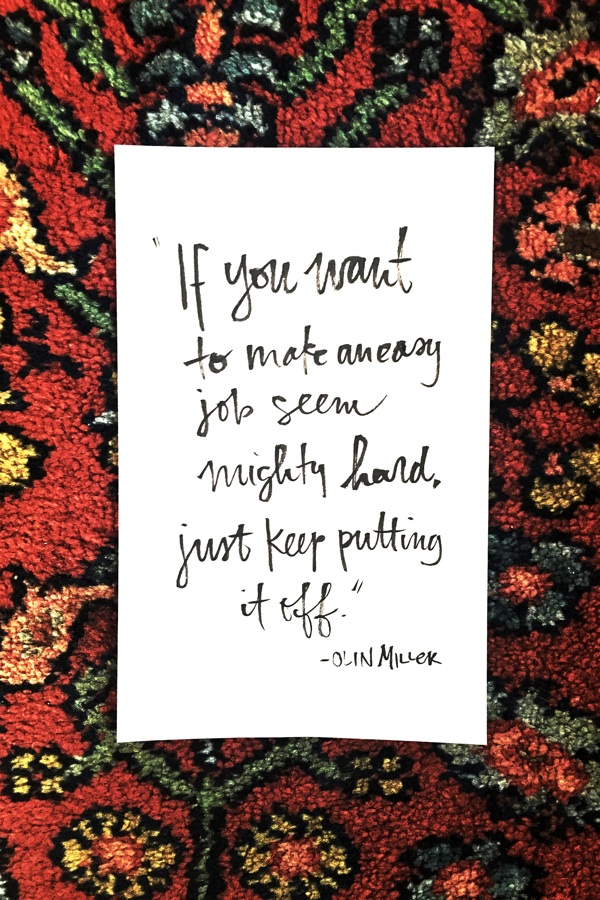 "If you want
to make an easy
job seem
mighty hard,
just keep putting
it off."
-OLIN MILLER